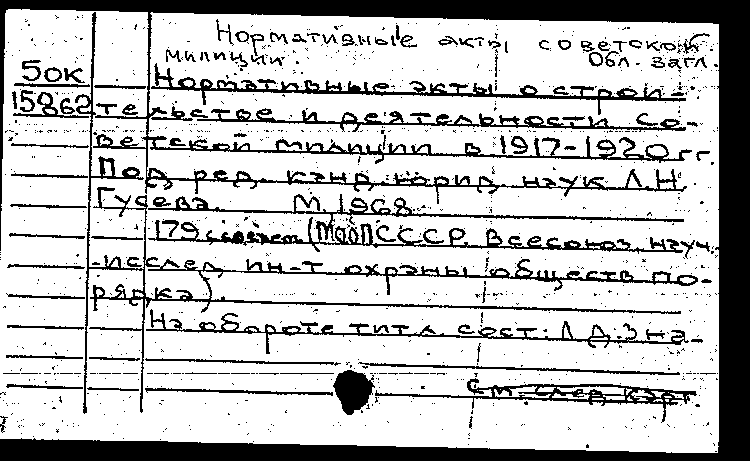 Нормативные акты советской
милиции. Обл. загл.
50к Нормативные акты о строи-
15862 тельстве и деятельности со-
ветской милиции в 1917-1920 гг.
Под ред. канд. юрид. наук Л.Н.
Гусева. М. 1968.
179 с. (МООП СССР. Всесоюз. науч.
-исслед. ин-т охраны обществ. по-
рядка).
На обороте тит. л. сост.: Л.Д.
См. след. карт.